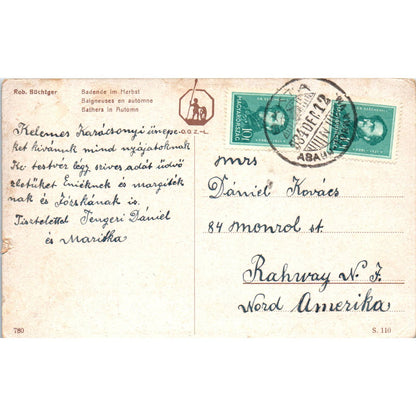 Rob. Büchtger
Badende im Herbst
Baigneuses en automne
Bathers in Autumn
O.G.Z.-L.
Kelemes Karácsonyi ünepe-
ket kivánunk mind nyájatoknak
Kr testvér légy szives adát üdvö
zletüket Eniéknek és margiték
nak és Józskának is.
Tisztelettel Tengeri Dániel
és Mariska
MAGYARORSZÁG
10
934 DEC 12
ABAU
mrs
Dániel Kovács
84 monrol st.
Rahway N. J.
Nord Amerika
780
S. 110